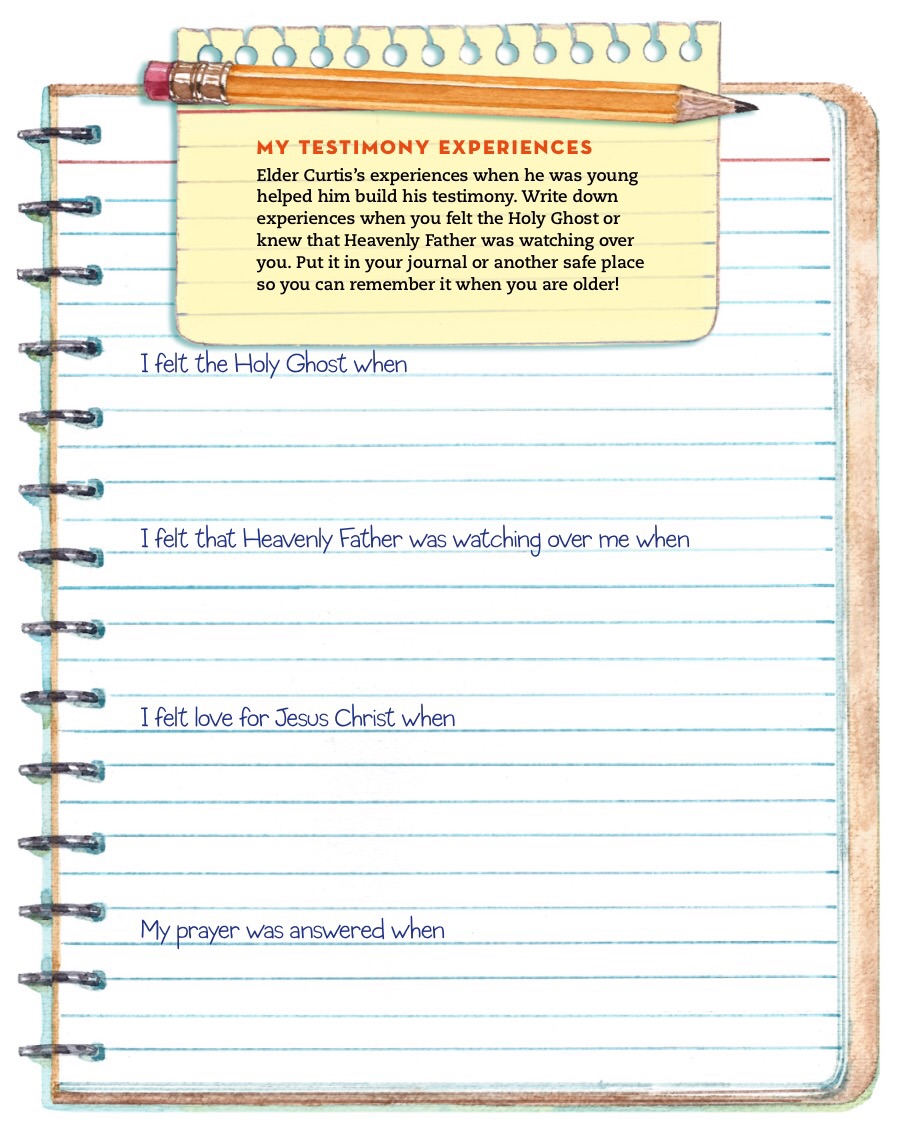 MY TESTIMONY EXPERIENCES
Elder Curtis's experiences when he was young
helped him build his testimony. Write down
experiences when you felt the Holy Ghost or
knew that Heavenly Father was watching over
you. Put it in your journal or another safe place
so you can remember it when you are older!
I felt the Holy Ghost when
I felt that Heavenly Father was watching over me when
I felt love for Jesus Christ when
My prayer was answered when